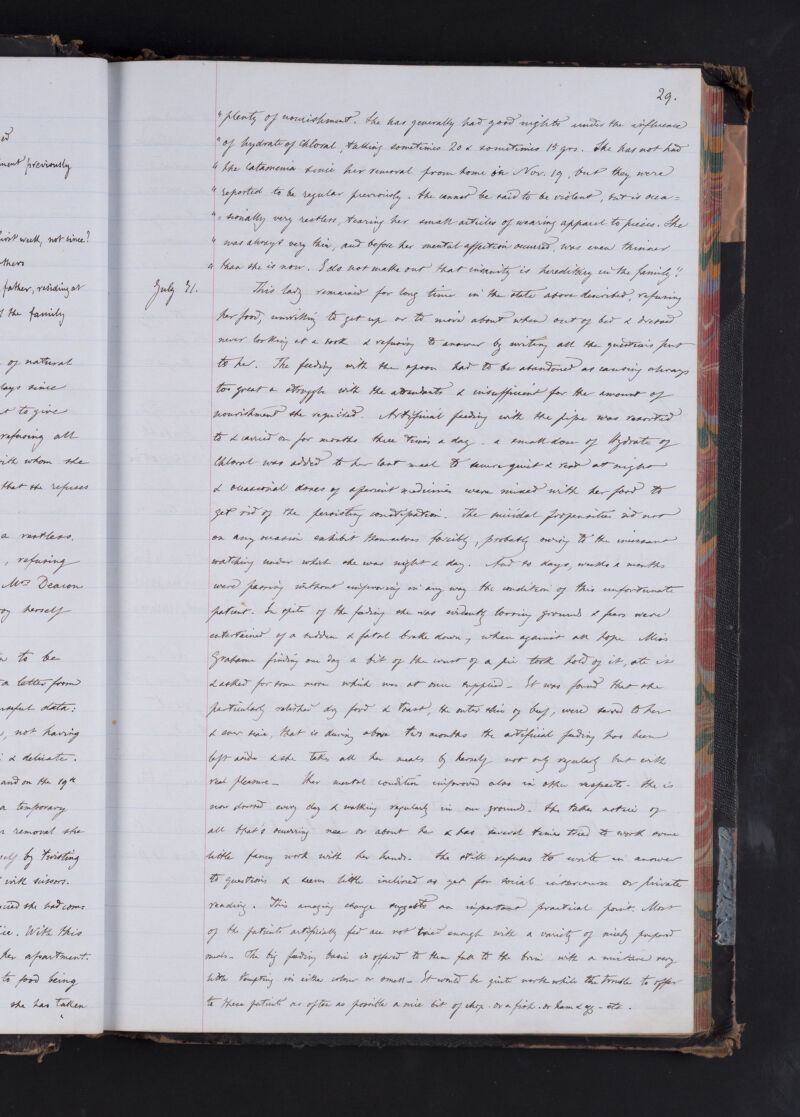 ed
ment previously
first week, not since?
others
father, residing at
of the family
of natural
days since
to give
refusing all
with whom she
that she refuses
a restless.
, refusing
Mrs Deacon
herself
to be
a letter from
useful data:
, not having
& delicate.
and on the 19th
a temporary
removal she
self by twisting
with scissors.
she had com=
With this
her apartment.
to food being
she has taken
29.
"plenty of nourishment. She has generally had good nights under the influence
"of hydrate of Chloral, taking sometimes 20 & sometimes 15 grs. She has not had
"the Catamenia since her removal from home on Nov. 19, but they were
"reported to be regular previously. She cannot be said to be violent, but is occa=
"=sionally very restless, tearing her small articles of wearing apparel to pieces. She
"was always very thin, and before her mental affection occurred, was even thinner
"than she is now. I do not make out that insanity is hereditary in the family."
July 31. This lady remained for long time in the state above described, refusing
her food, unwilling to get up or to move about when out of bed & dressed
never looking at a book & refusing to answer by writing all the questions put
to her. The feeding with the spoon had to be abandoned as causing always
too great a struggle with the attendants & insufficient for the amount of
nourishment she required. Artificial feeding with the pipe was resorted
to & carried on for months three times a day. a small dose of Hydrate of
Chloral was added to her last meal to secure quiet & rest at night
& occasional doses of aperient medicines were mixed with her food to
get rid of the persisting constipation. The suicidal propensities did not
on any occasion exhibit themselves forcibly, probably owing to the incessant
watching under which she was night & day. And so days, weeks & months
were passing without improving in any way the condition of this unfortunate
patient. In spite of the feeding she was evidently loosing ground & fears were
entertained of a sudden & fatal brake down, when against all hope Miss
Grahame finding one day a bit of the crust of a pie took hold of it, ate it
& asked for some more which was at once supplied – It was found that she
particularly relished dry food & toast, the outer skin of beef, were served to her
& ever since, that is during above two months the artificial feeding has been
left aside & she takes all her meals by herself not only regularly but with
real pleasure – Her mental condition improved also in other respects. She is
now dressed every day & walking regularly in our grounds. She takes notice of
all that's occurring near or about her & has several times tried to work some
little fancy work with her hands. She still refuses to write in answer
to questions & seems little inclined as yet for social intercourse or private
reading. This amazing change suggests an important practical point. Most
of the patients artificially fed are not tried enough with a variety of nicely prepared
meals – The big feeding basin is offered to them full to the brim with a mixture very
little tempting in either colour or smell – It would be quite worth while the trouble to offer
to these patients as often as possible a nice bit of chop. or a fish. or ham & egg – etc.